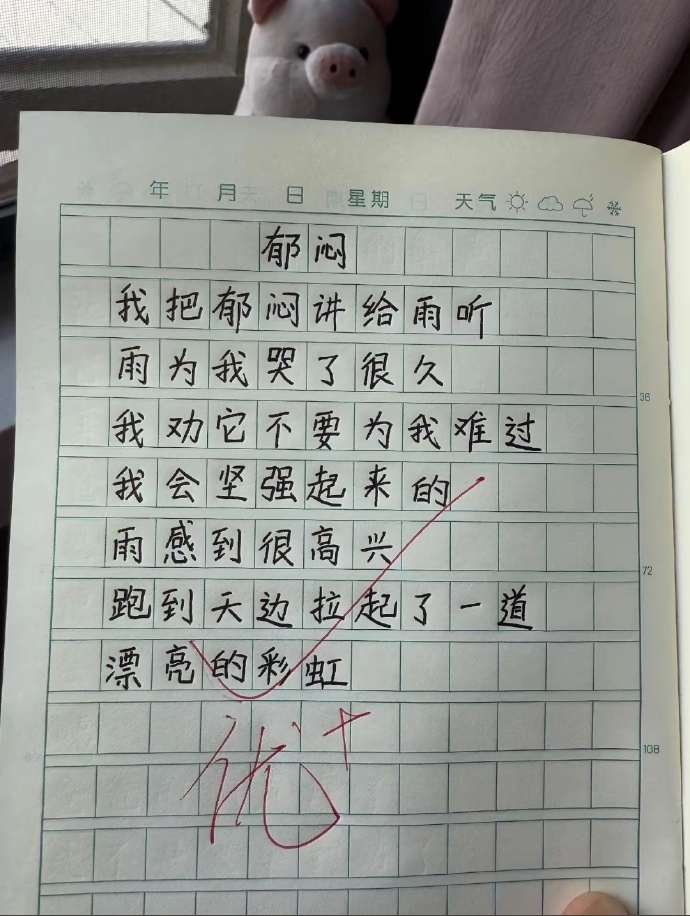 年 月 日 星期 天气
郁闷
我把郁闷讲给雨听
雨为我哭了很久
38
我劝它不要为我难过
我会坚强起来的
雨感到很高兴
72
跑到天边拉起了一道
漂亮的彩虹
优+
108